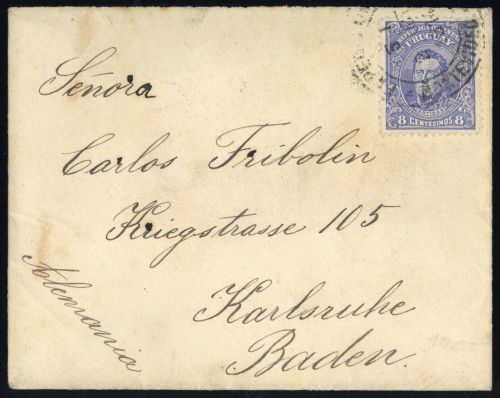 REPUBLICA ORIENTAL
URUGUAY
ARTIGAS
8 CENTESIMOS 8
Señora
Carlos Fribolin
Kriegstrasse 105
Karlsruhe
Baden.
Alemania